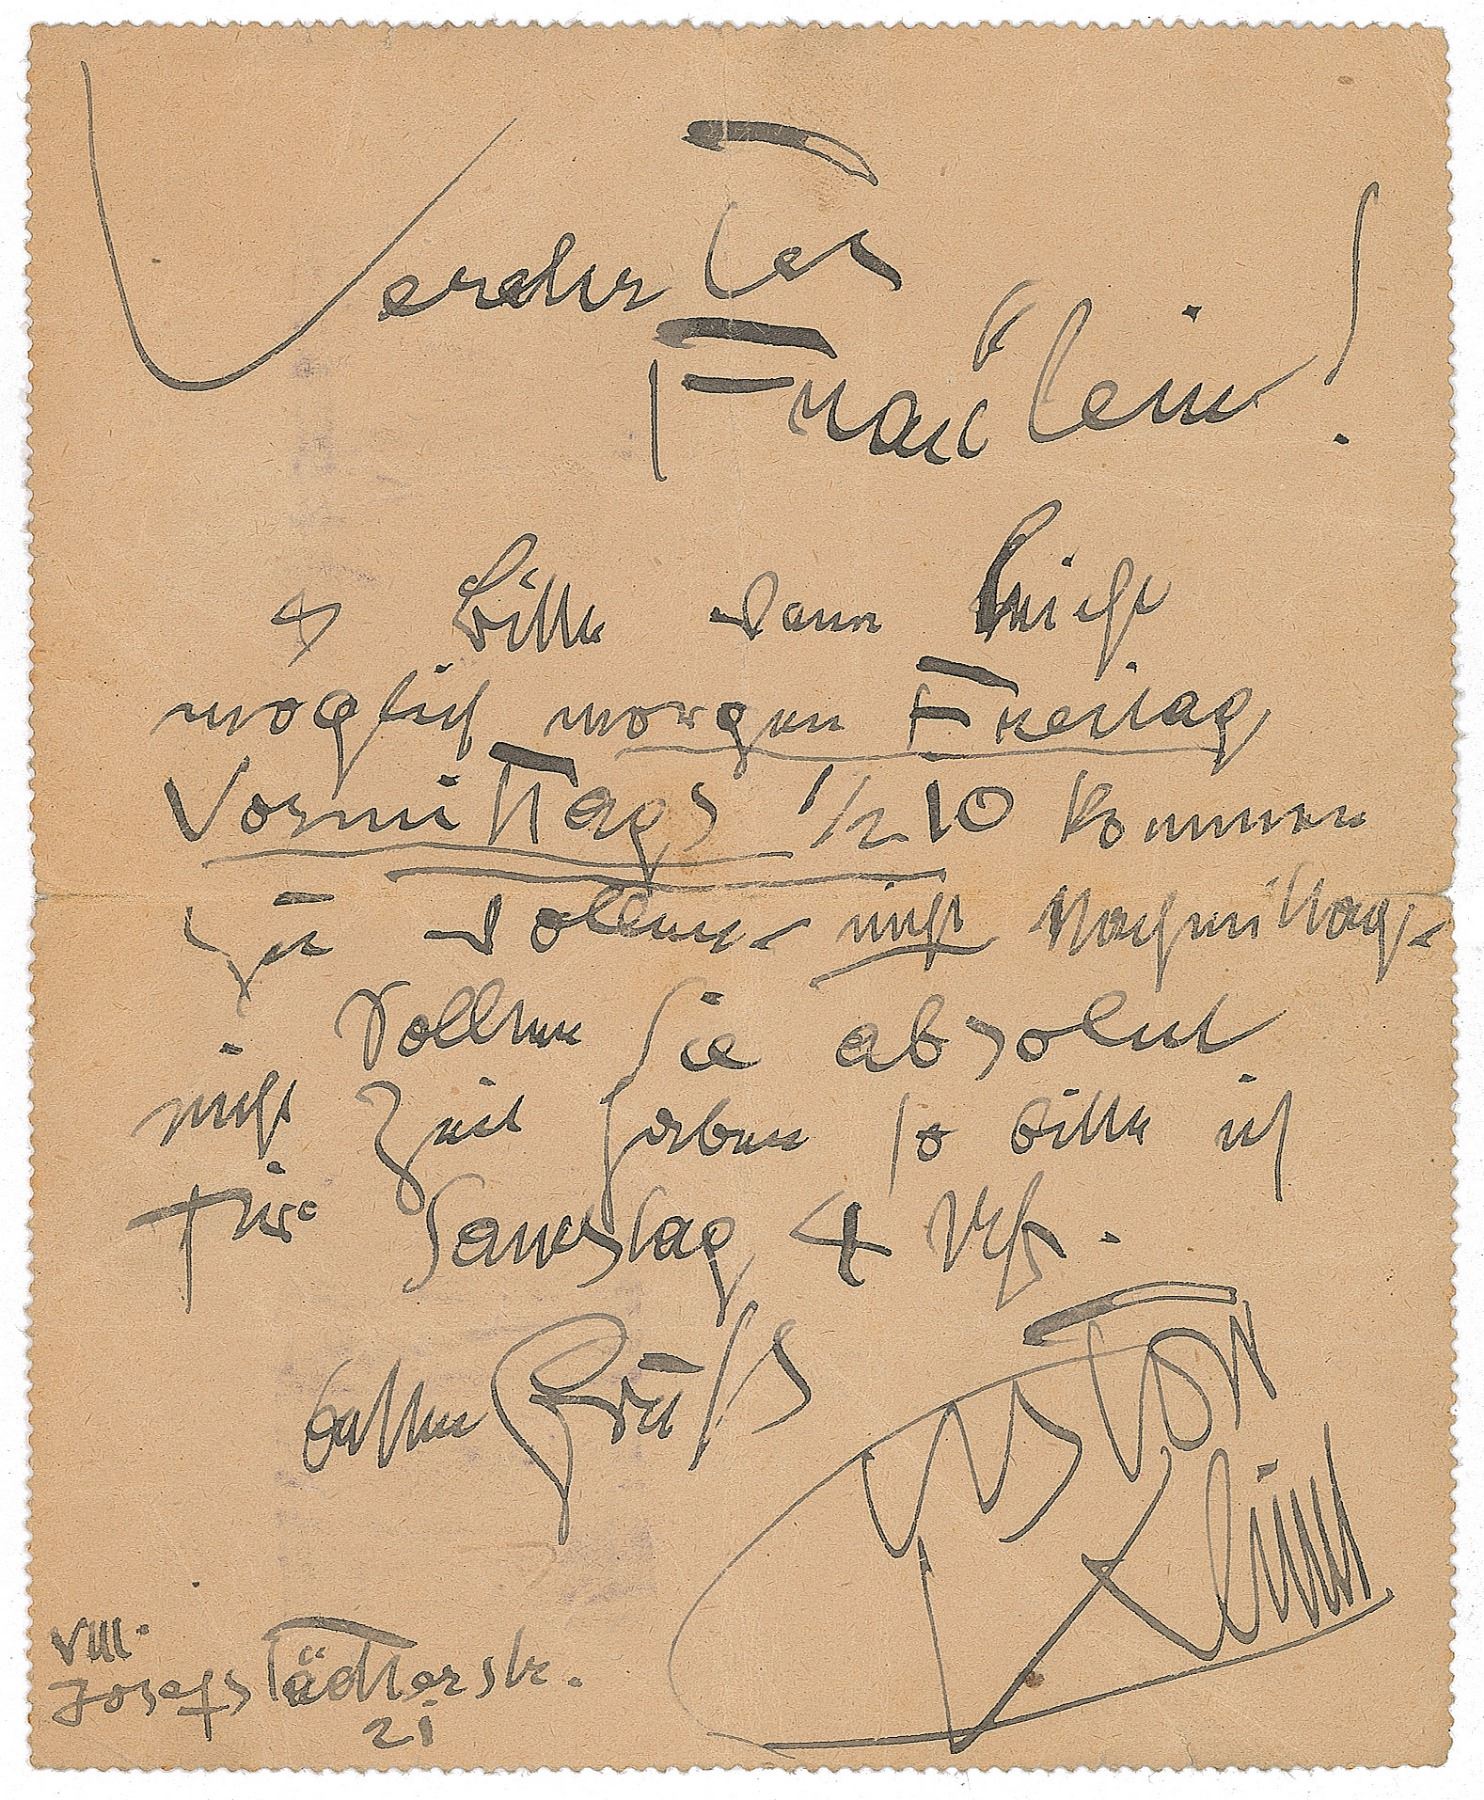 Verehrtes
Fräulein!
bitte wenn leicht
möglich morgen Freitag
Vormittags 1/2 10 kommen
zu wollen – nicht Nachmittag –
Sollten Sie absolut
nicht Zeit haben so bitte ich
für Samstag 4 Uhr.
besten Gruß
GUSTAV
KLIMT
VIII.
Josefstädterstr.
21